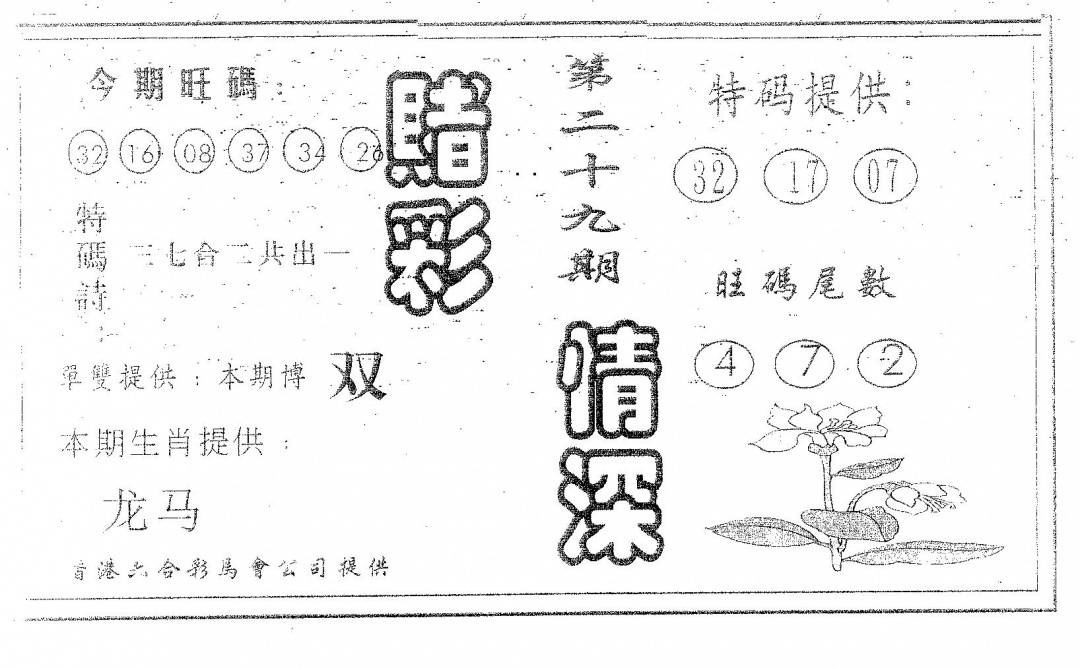 今期旺碼：
32 16 08 37 34 26
特碼詩：
三七合二共出一
單雙提供：本期博 双
本期生肖提供：
龙马
香港六合彩馬會公司提供
賭彩
第二十九期
情深
特码提供：
32 17 07
旺碼尾數
4 7 2